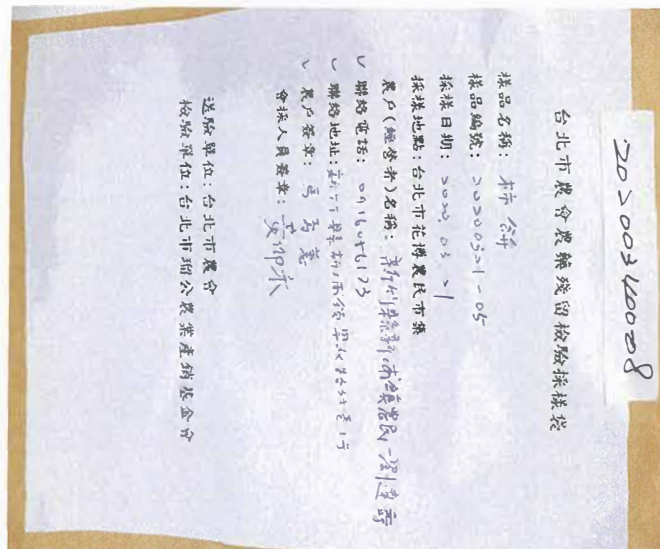 20200324008
台北市農會農藥殘留檢驗採樣袋
樣品名稱：柿餅
樣品編號：20200321-05
採樣日期：2020.03.21
採樣地點：台北市花博農民市集
農戶(經營者)名稱：新竹縣新埔鎮農民-劉
✓ 聯絡電話：0916056173
✓ 聯絡地址：新竹縣新埔鎮
✓ 農戶簽章：
會採人員簽章：
送驗單位：台北市農會
檢驗單位：台北市瑠公農業產銷基金會